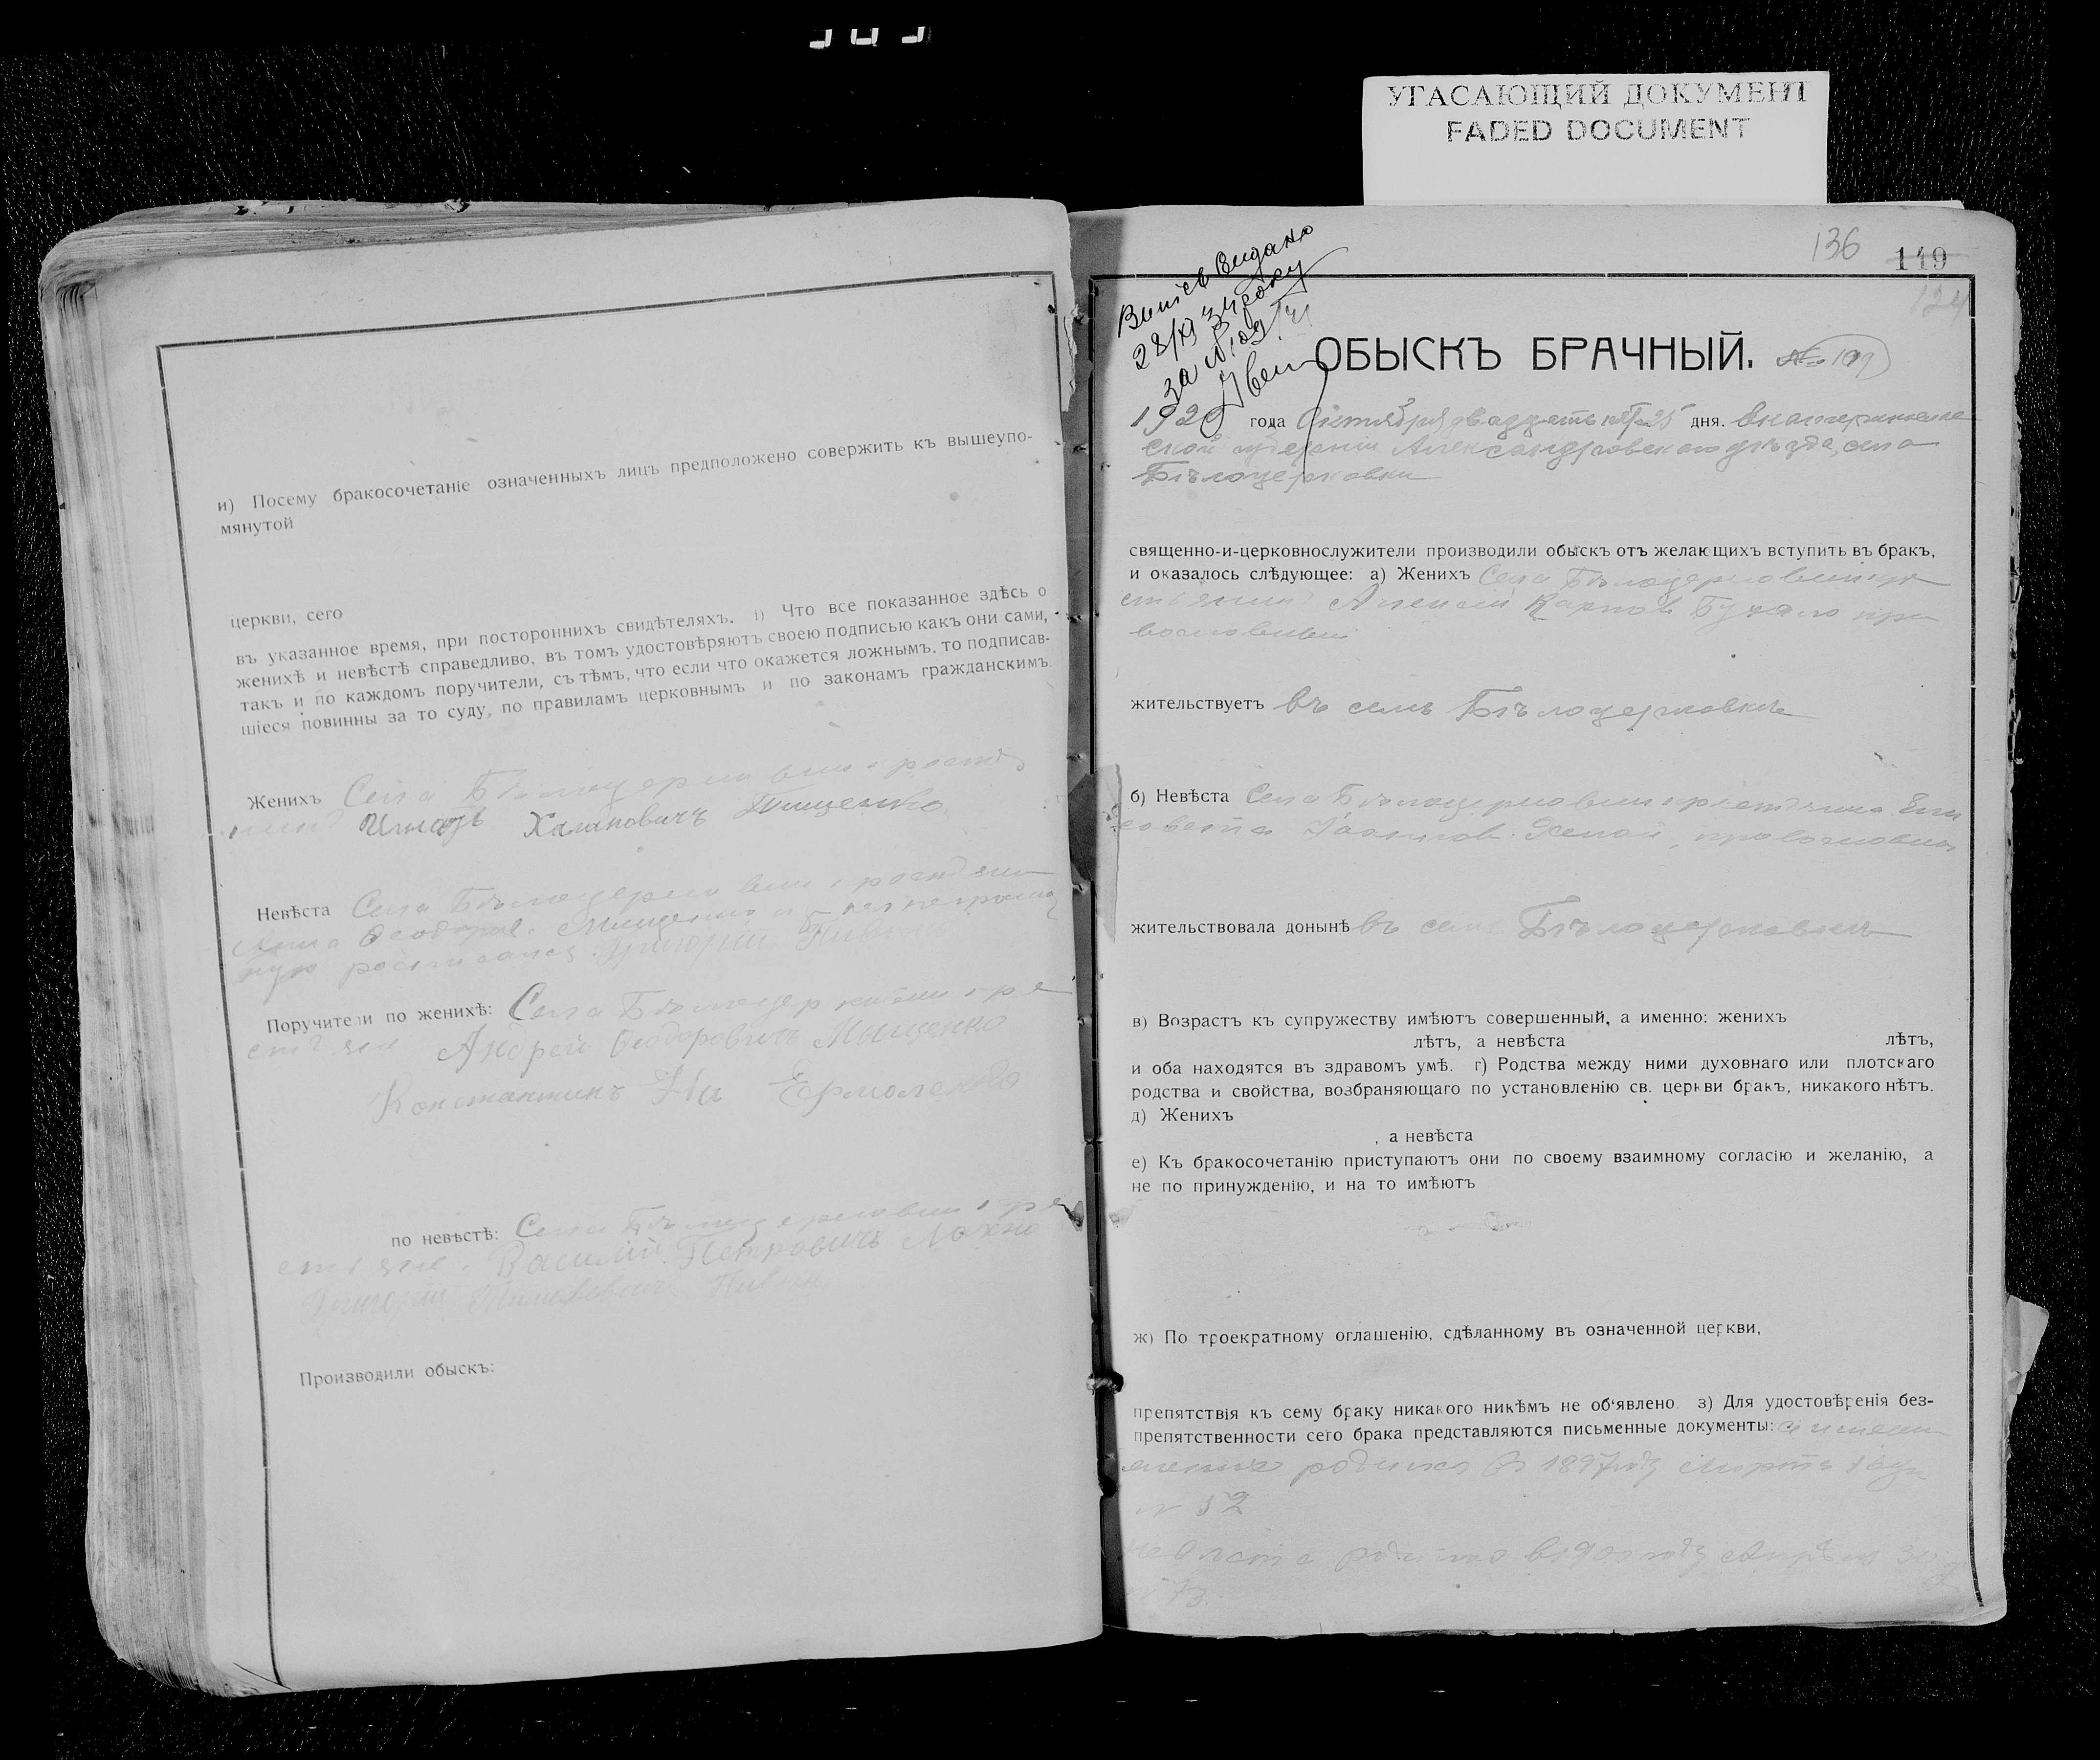 УГАСАЮЩИЙ ДОКУМЕНТ
FADED DOCUMENT
и) Посему бракосочетаніе означенныхъ лицъ предположено совержить къ вышеупо-
мянутой
церкви, сего
въ указанное время, при постороннихъ свидѣтеляхъ. і) Что все показанное здѣсь о
женихѣ и невѣстѣ справедливо, въ томъ удостовѣряютъ своею подписью какъ они сами,
такъ и по каждомъ поручители, съ тѣмъ, что если что окажется ложнымъ, то подписав-
шіеся повинны за то суду, по правиламъ церковнымъ и по законамъ гражданскимъ.
Женихъ Села Бѣлоцерковки
Тищенко
Невѣста Села Бѣлоцерковки
Анна Ѳеодоров. Мищенко
Григорій
Поручители по женихѣ: Села Бѣлоцерковки кре
стьяне Андрей Ѳеодоровичъ Мищенко
Константинъ Ермоленко
по невѣстѣ: Села Бѣлоцерковки кре
стьяне. Василій Петровичъ Махно
Григорій
Производили обыскъ:
136 149
124
Видано
28/XI 34 року
за № 109
ОБЫСКЪ БРАЧНЫЙ.
1920 года Октября двадцать 25 дня. Екатеринослав
ской губерніи Александровскаго уѣзда, села
Бѣлоцерковки
священно-и-церковнослужители производили обыскъ отъ желающихъ вступить въ бракъ,
и оказалось слѣдующее: а) Женихъ Села Бѣлоцерковки кре
стьянинъ Алексій Карпов Бухало пра
вославный
жительствуетъ въ селѣ Бѣлоцерковкѣ
б) Невѣста Села Бѣлоцерковки крестьянка Ели
савета православная
жительствовала донынѣ въ селѣ Бѣлоцерковкѣ
в) Возрастъ къ супружеству имѣютъ совершенный, а именно: женихъ
лѣтъ, а невѣста лѣтъ,
и оба находятся въ здравомъ умѣ. г) Родства между ними духовнаго или плотскаго
родства и свойства, возбраняющаго по установленію св. церкви бракъ, никакого нѣтъ.
д) Женихъ
, а невѣста
е) Къ бракосочетанію приступаютъ они по своему взаимному согласію и желанію, а
не по принужденію, и на то имѣютъ
ж) По троекратному оглашенію, сдѣланному въ означенной церкви,
препятствія къ сему браку никакого никѣмъ не об'явлено. з) Для удостовѣренія без-
препятственности сего брака представляются письменные документы:
родился въ 1897 году Марта
№ 52
невѣста родилась в 1900 году Апрѣля 30
73.